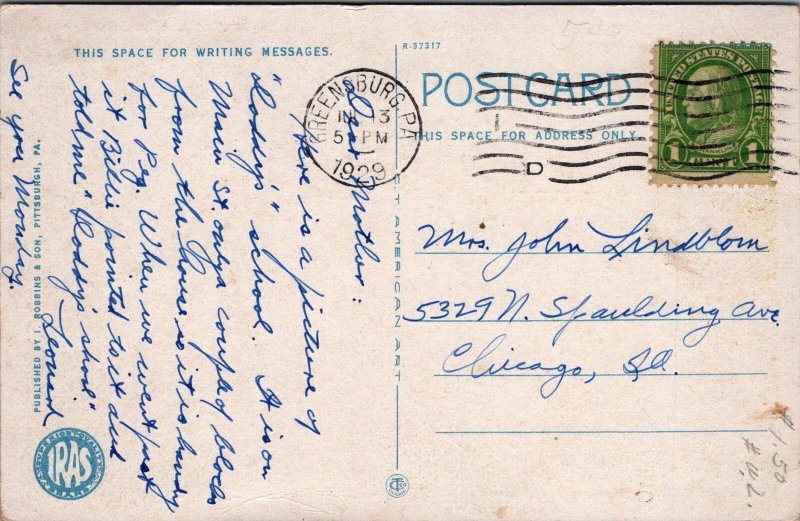 THIS SPACE FOR WRITING MESSAGES.
Dear Mother:
Here is a picture of
"Roddy's" school. It is on
Main St. only a couple of blocks
from the house, so it is handy
for Peg. When we went past
it Billie pointed to it and
told me "Roddy's shool"
Leonard
See you Monday.
PUBLISHED BY I. ROBBINS & SON, PITTSBURGH, PA.
IRAS
R-37317
POST CARD
THIS SPACE FOR ADDRESS ONLY
GREENSBURG, PA.
3
5 PM
1929
D
UNITED STATES POSTAGE
1 CENT 1
Mrs. John Lindblom
5329 N. Spaulding Ave.
Chicago, Ill.
C.T. AMERICAN ART
$1.50